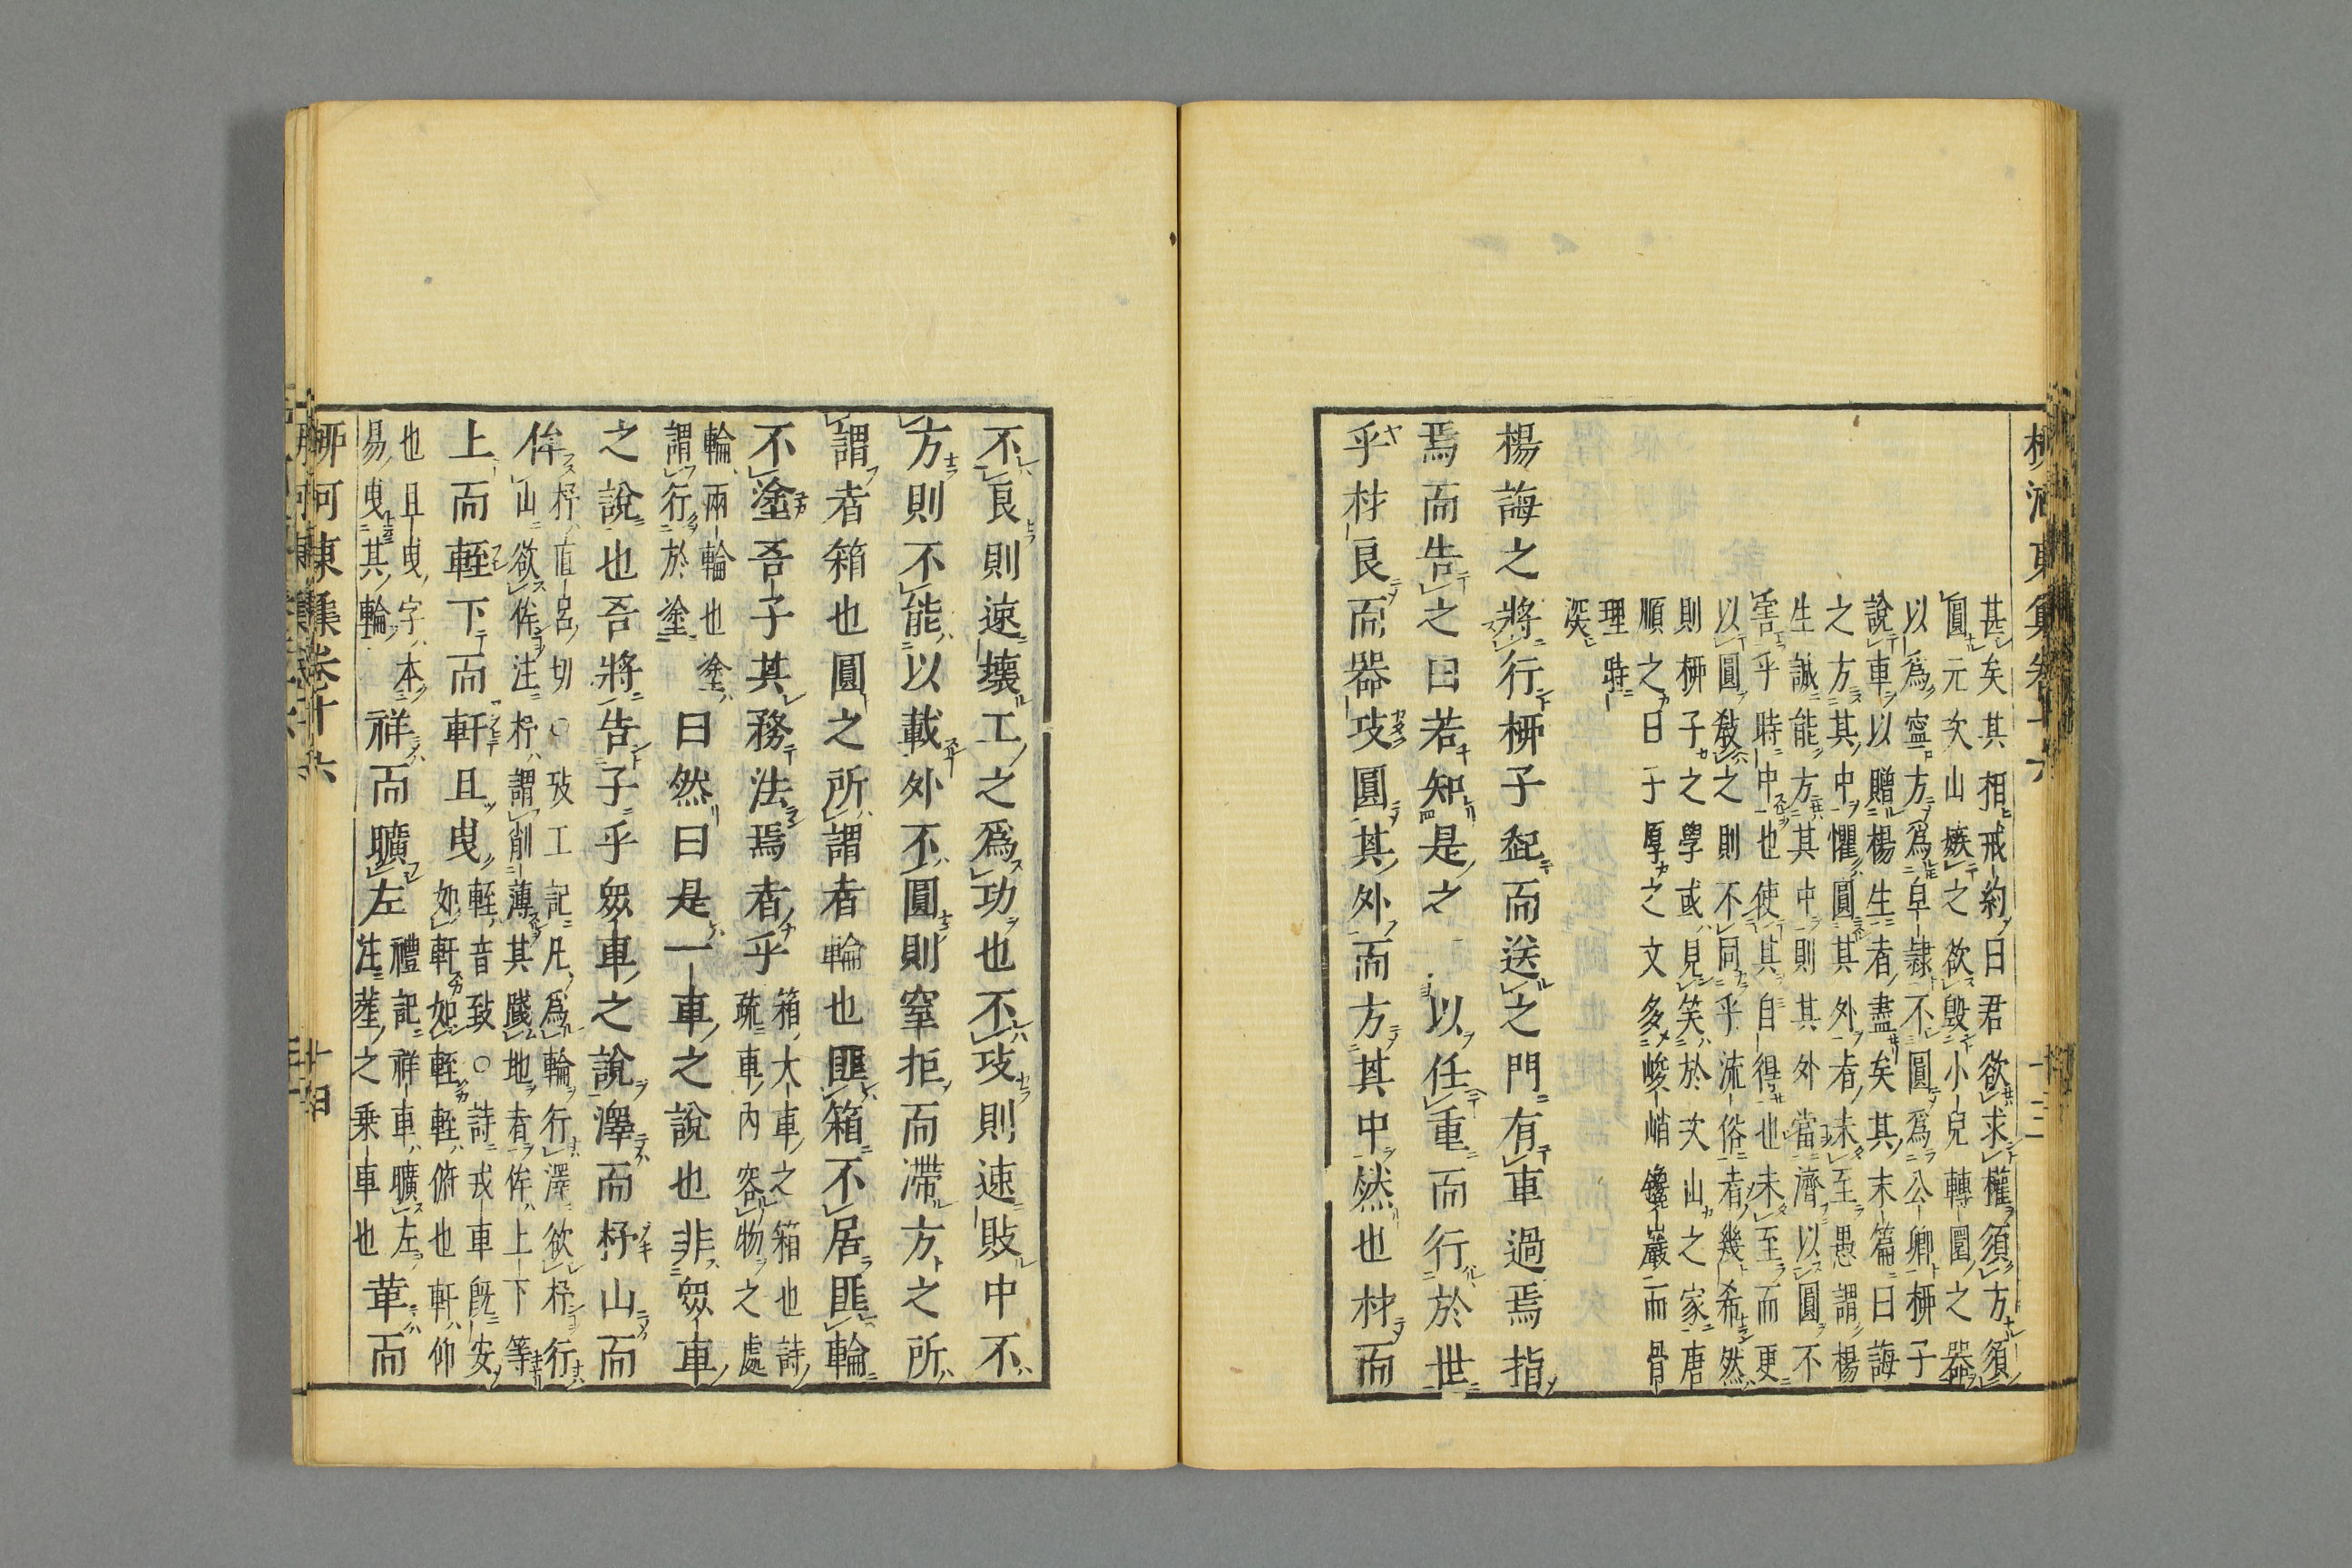 柳河東集卷十六　十三
甚矣其相戒約曰君欲求權須方須
圓元次山嫉之欲毀小兒轉圜之器
以爲寧方爲皁隷不圓爲公卿柳子
說車以贈楊生者盡矣其末篇曰誨
之方其中懼圓其外者未至愚謂楊
生誠能方其中則其外當濟以圓不
害乎時中也使其自得也未至而更
以圓教之則不同乎流俗者幾希然
則柳子之學或見笑於次山之家唐
順之曰子厚之文多峻峭鑱巖而骨
理時
㴱
楊誨之將行柳子起而送之門有車過焉指
焉而告之曰若知是之以任重而行於世
乎材良而器攻圓其外而方其中然也材而
不良則速壞工之爲功也不攻則速敗中不
方則不能以載外不圓則窒拒而滯方之所
謂者箱也圓之所謂者輪也匪箱不居匪輪
不塗吾子其務法焉者乎箱大車之箱也詩疏車内容物之處
輪兩輪也塗謂行於塗曰然曰是一車之說也非衆車
之說也吾將告子乎衆車之說澤而杼山而
侔杼直呂切○攷工記凡爲輪行澤欲杼行山欲侔注杼謂削薄其踐地者侔上下等
上而輊下而軒且曳輊音致○詩戎車既安如軒如輊輊俯也軒仰
也且曳字本易曳其輪祥而曠左禮記祥車曠左注葬之乗車也革而
柳河東集卷十六　十四